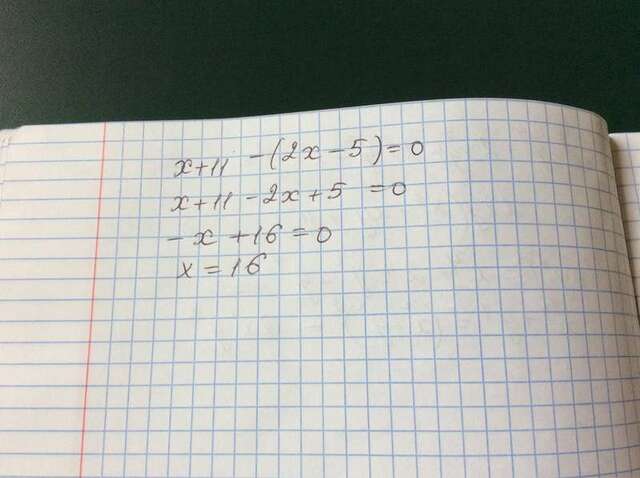 x+11 -(2x-5)=0
x+11-2x+5 =0
-x +16=0
x=16